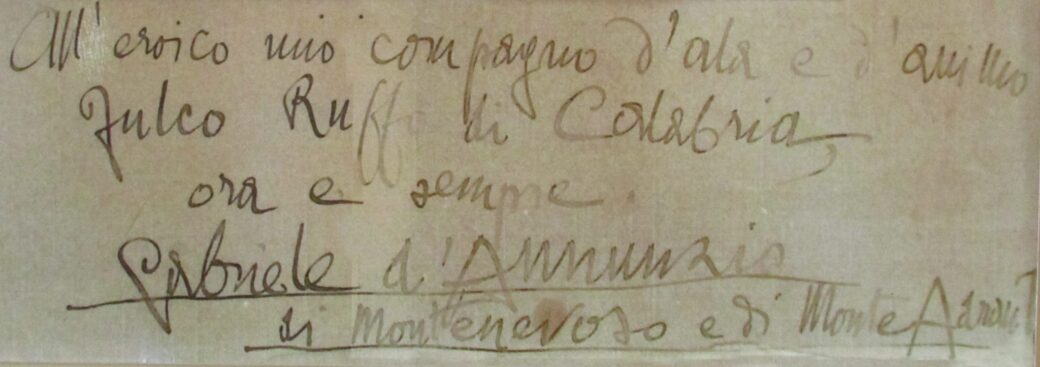 All'eroico mio compagno d'ala e d'animo
Fulco Ruffo di Calabria,
ora e sempre.
Gabriele d'Annunzio
di Montenevoso e di Monte